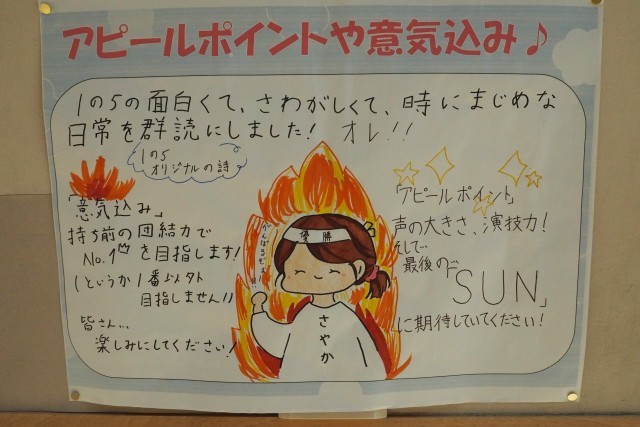 アピールポイントや意気込み♪
1の5の面白くて、さわがしくて、時にまじめな
日常を群読にしました! オレ!!
1の5
オリジナルの詩
「意気込み」
持ち前の団結力で
No.1を目指します!
(というか1番以外
目指しません!!
皆さん...
楽しみにしてください!
がんばるぞょ!!
優勝
さやか
「アピールポイント」
声の大きさ、演技力!
そして
最後の
「SUN」
に期待していてください!